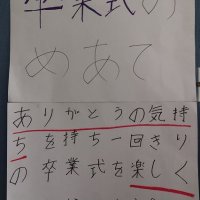 卒業式の
めあて
ありがとうの気持
ちを持ち一回きり
の卒業式を楽しく